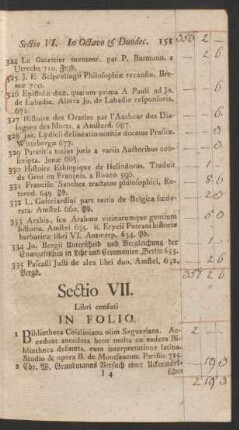 Sectio VI. In Octavo & Duodec. 151
324 Le Gazettier menteur, par P. Burmann. a
Utrecht 710.
325 J. E. Schwelingii Philosophiæ recensio. Bre-
mæ 700.
326 Epistolæ duæ, quarum prima A. Pauli ad Jo.
de Labadie, Altera Jo. de Labadie responsoria.
671.
327 Histoire des Oracles par l'Autheur des Dia-
logues des Morts. a Amsterd. 687.
328 Jac. Lydii delineatio mentis docentis Prussiæ.
Witteberga 677.
329 Paratitla totius juris a variis Authoribus con-
scripta. Jenæ 663.
330 Histoire Ethiopique de Heliodorus. Traduit
de Grec en François, a Rouen 596.
331 Francisc. Sanchez tractatus philosophici, Ro-
terod. 649. Pb.
332 L. Guicciardini pars tertia de Belgica fœde-
rata. Amstel. 660. Pb.
333 Arabia, seu Arabum vicinarumque gentium
historia. Amstel 635. it. Erycii Puteani historiæ
barbaricæ libri VI. Antverp. 634. Pb.
334 Jo. Bergii Unterscheid und Vergleichung der
Evangelischen in Lehr und Ceremonien, Berlin 635.
335 Pascasii Justi de alea libri duo, Amstel. 642.
Pergb.
Sectio VII.
Libri confuti
IN FOLIO.
1 Bibliotheca Coisliniana olim Segueriana. Ac-
cedunt anecdota bene multa ex eadem Bi-
bliotheca desumta, cum interpretatione latina.
Studio & opera B. de Montfaucon. Parisiis 715.
2 Chr. W. Grundmanns Versuch einer Uckermärki-
I 4 schen